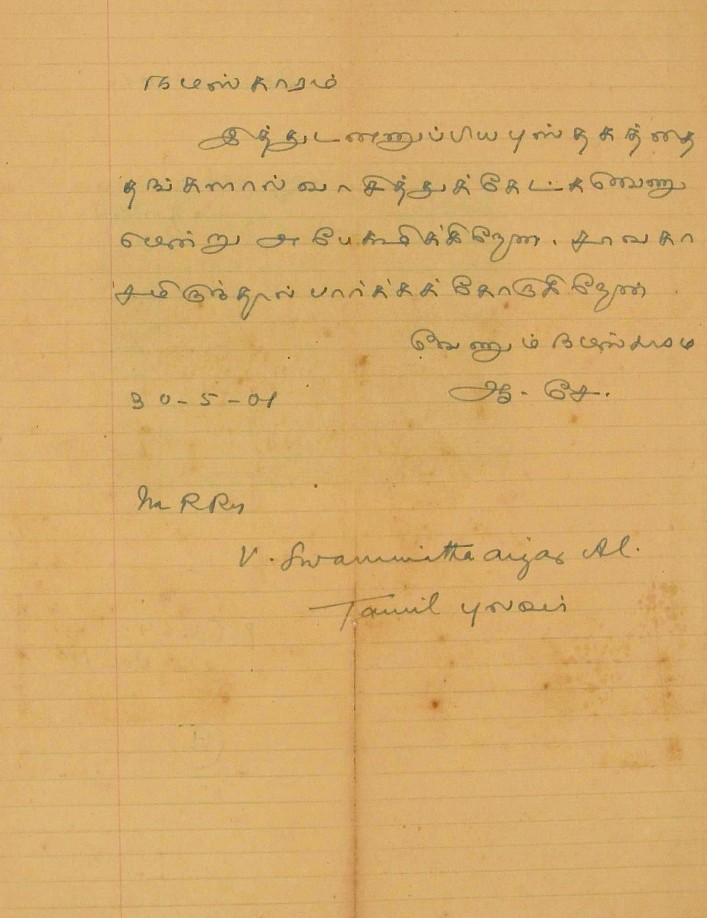 நமஸ்காரம்
இத்துடனனுப்பிய புஸ்தகத்தை
தங்களால் வாசித்துக் கேட்கவேணு
மென்று அபேக்ஷிக்கிறேன். சாவகா
சமிருந்தால் பார்க்கக் கோருகிறேன்
வேணும் நமஸ்காரம்
ஆ. சே.
30-5-01
M R Ry
V. Swaminatha aiyar Al.
Tamil புலவர்